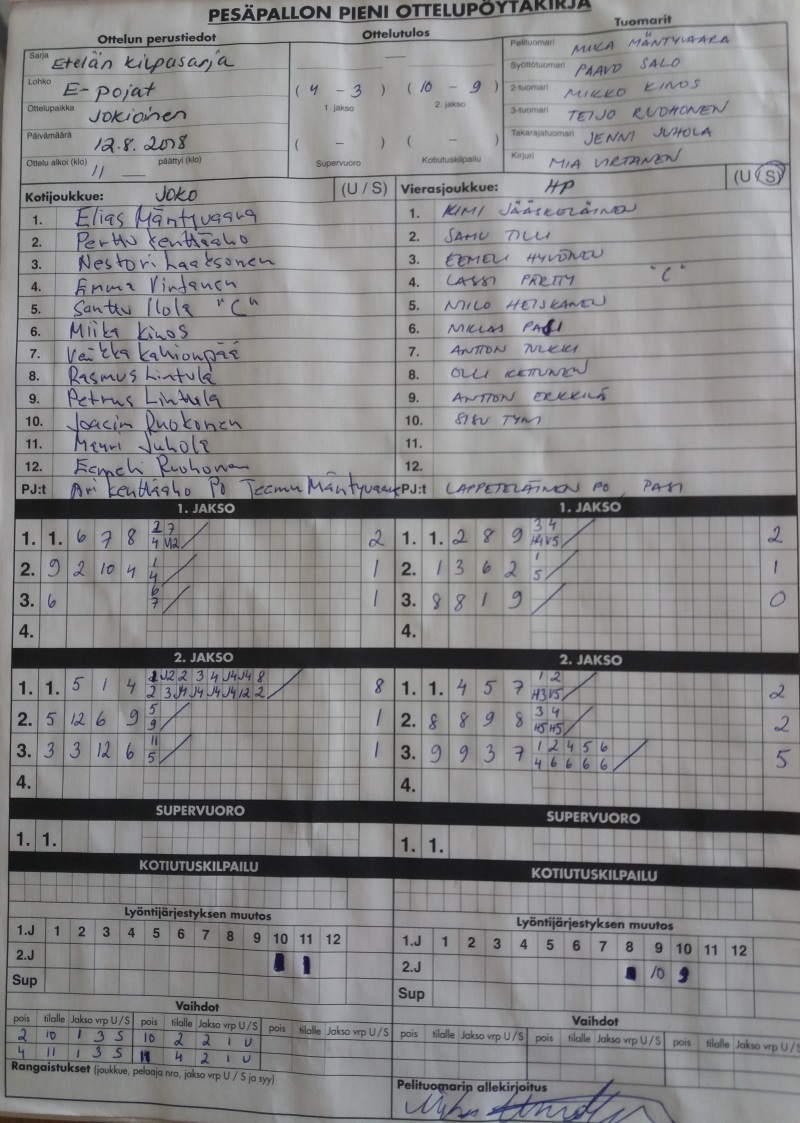 PESÄPALLON PIENI OTTELUPÖYTÄKIRJA
Ottelun perustiedot
Sarja Etelän kilpasarja
Lohko E-pojat
Ottelupaikka Jokioinen
Päivämäärä 12.8.2018
Ottelu alkoi (klo) 11 päättyi (klo)
Ottelutulos
( 4 - 3 ) ( 10 - 9 )
1. jakso 2. jakso
( - ) ( - )
Supervuoro Kotiutuskilpailu
Tuomarit
Pelituomari MIKA MÄNTYVAARA
Syöttötuomari PAAVO SALO
2-tuomari MIKKO KINOS
3-tuomari TEIJO RUOHONEN
Takarajatuomari JENNI JUHOLA
Kirjuri MIA VIRTANEN
Kotijoukkue: JOKO (U / S)
1. Elias Mäntyvaara
2. Perttu Kenttäaho
3. Nestori Laaksonen
4. Emma Virtanen
5. Santtu Ilola "C"
6. Miika Kinos
7. Veikka Kahionpää
8. Rasmus Lintula
9. Petrus Lintula
10. Joacim Ruokonen
11. Mauri Juhola
12. Eemeli Ruohonen
PJ:t Ari Kenttäaho PO Teemu Mäntyvaara
Vierasjoukkue: HP (U / S)
1. KIMI JÄÄSKELÄINEN
2. SAMU TILLI
3. EEMELI HYVÖNEN
4. LASSI PÄRTTY "C"
5. MILO HEISKANEN
6. NIKLAS PASI
7. ANTTON TULKKI
8. OLLI KETTUNEN
9. ANTTON ERKKILÄ
10. SISU TYNI
11.
12.
PJ:t LAPPETELÄINEN PO, PASI
1. JAKSO
1. 1. 6 7 8 2
2. 9 2 10 4 1 4 1
3. 6 6 7 1
4.
1. JAKSO
1. 1. 2 8 9 3 4 2
2. 1 3 6 2 1 5 1
3. 8 8 1 9 0
4.
2. JAKSO
1. 1. 5 1 4 8
2. 5 12 6 9 5 9 1
3. 3 3 12 6 11 5 1
4.
2. JAKSO
1. 1. 4 5 7 1 2 2
2. 8 8 9 8 3 4 2
3. 9 9 3 7 1 2 4 5 6 4 6 6 6 6 5
4.
SUPERVUORO
1. 1.
SUPERVUORO
1. 1.
KOTIUTUSKILPAILU
KOTIUTUSKILPAILU
Lyöntijärjestyksen muutos
1.J 1 2 3 4 5 6 7 8 9 10 11 12
2.J
Sup
Lyöntijärjestyksen muutos
1.J 1 2 3 4 5 6 7 8 9 10 11 12
2.J 10 9
Sup
Vaihdot
pois tilalle Jakso vrp U / S pois tilalle Jakso vrp U / S pois tilalle Jakso vrp U / S
2 10 1 3 S 10 2 2 1 U
4 11 1 3 S 11 4 2 1 U
Vaihdot
pois tilalle Jakso vrp U / S pois tilalle Jakso vrp U / S pois tilalle Jakso vrp U / S
Rangaistukset (joukkue, pelaaja nro, jakso vrp U / S ja syy)
Pelituomarin allekirjoitus